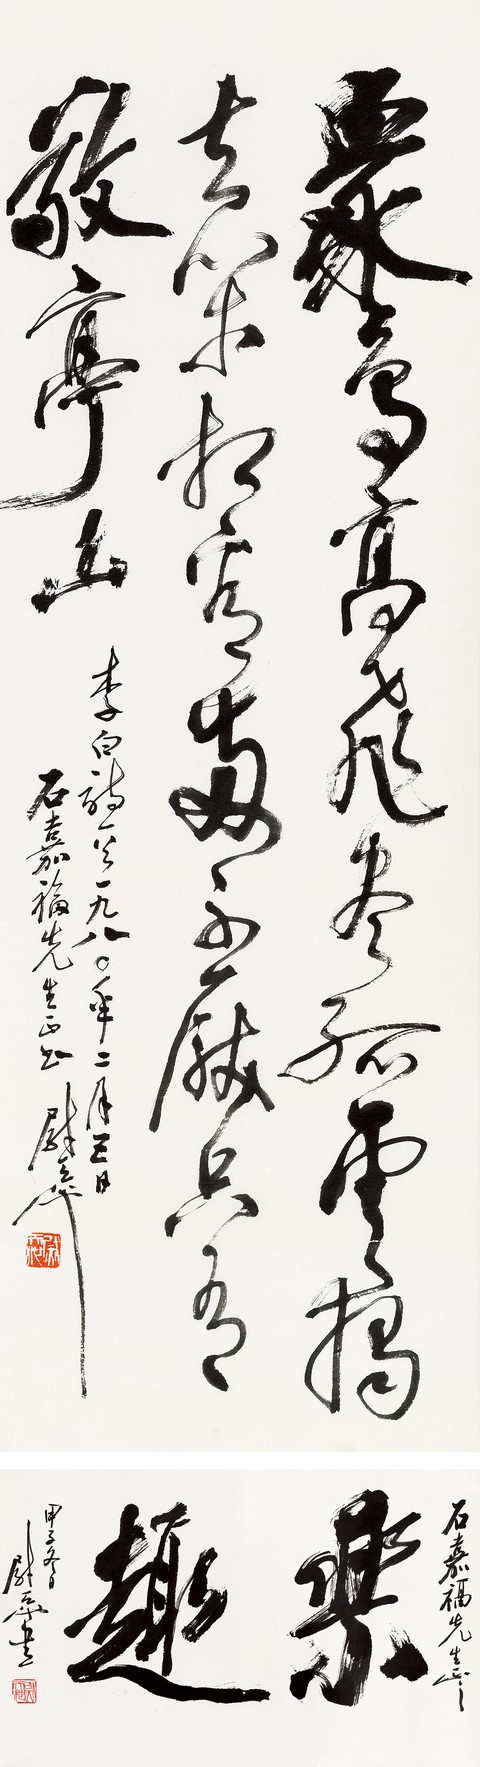 眾鳥高飛盡孤雲獨
去閑相看兩不厭只有
敬亭山
李白詩一首一九八〇年二月五日
石嘉福先生正書
尉天池
石嘉福先生正之
樂趣
甲子冬日
尉天池書